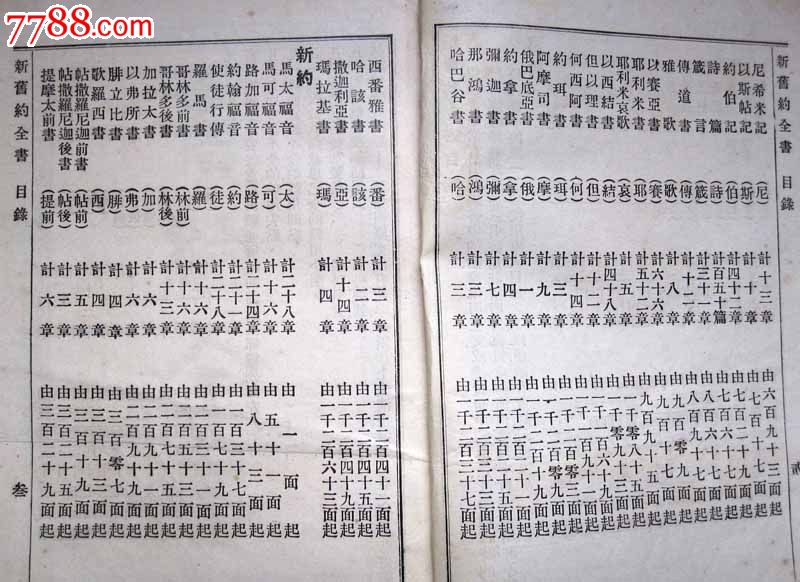 新舊約全書 目錄
尼希米記 (尼) 計十三章 由六百九十
以斯帖記 (斯) 計十章 由七百十
約伯記 (伯) 計四十二章 由七百二十
詩篇 (詩) 計百五十篇 由七百六十
箴言 (箴) 計三十一章 由八百六十七面起
傳道書 (傳) 計十二章 由
雅歌 (歌) 計八章 由九百
以賽亞書 (賽) 計六十六章 由九百
耶利米書 (耶) 計五十二章 由九百
耶利米哀歌 (哀) 計五章 由一千零
以西結書 (結) 計四十八章 由一千零
但以理書 (但) 計十二章 由一千一百
何西阿書 (何) 計十四章 由一千一百
約珥書 (珥) 計三章 由一千
阿摩司書 (摩) 計九章 由一千二百
俄巴底亞書 (俄) 計一章 由一千二百
約拿書 (拿) 計四章 由一千二百
彌迦書 (彌) 計七章 由一千二百二十五面起
那鴻書 (鴻) 計三章 由一千二百三十三面起
哈巴谷書 (哈) 計三章 由一千二百三十七面起
西番雅書 (番) 計三章 由一千二百四十一面起
哈該書 (該) 計二章 由一千二百四十五面起
撒迦利亞書 (亞) 計十四章 由一千二百四十九面起
瑪拉基書 (瑪) 計四章 由一千二百六十三面起
新約
馬太福音 (太) 計二十八章 由一面起
馬可福音 (可) 計十六章 由五十一面起
路加福音 (路) 計二十四章 由八十三面起
約翰福音 (約) 計二十一章 由一百三十七面起
使徒行傳 (徒) 計二十八章 由一百七十九面起
羅馬書 (羅) 計十六章 由二百三十一面起
哥林多前書 (林前) 計十六章 由二百五十三面起
哥林多後書 (林後) 計十三章 由二百七十五面起
加拉太書 (加) 計六章 由二百九十一面起
以弗所書 (弗) 計六章 由二百九十九面起
腓立比書 (腓) 計四章 由三百零七面起
歌羅西書 (西) 計四章 由三百十三面起
帖撒羅尼迦前書 (帖前) 計五章 由三百十九面起
帖撒羅尼迦後書 (帖後) 計三章 由三百二十五面起
提摩太前書 (提前) 計六章 由三百二十九面起
新舊約全書 目錄 叁
7788.com